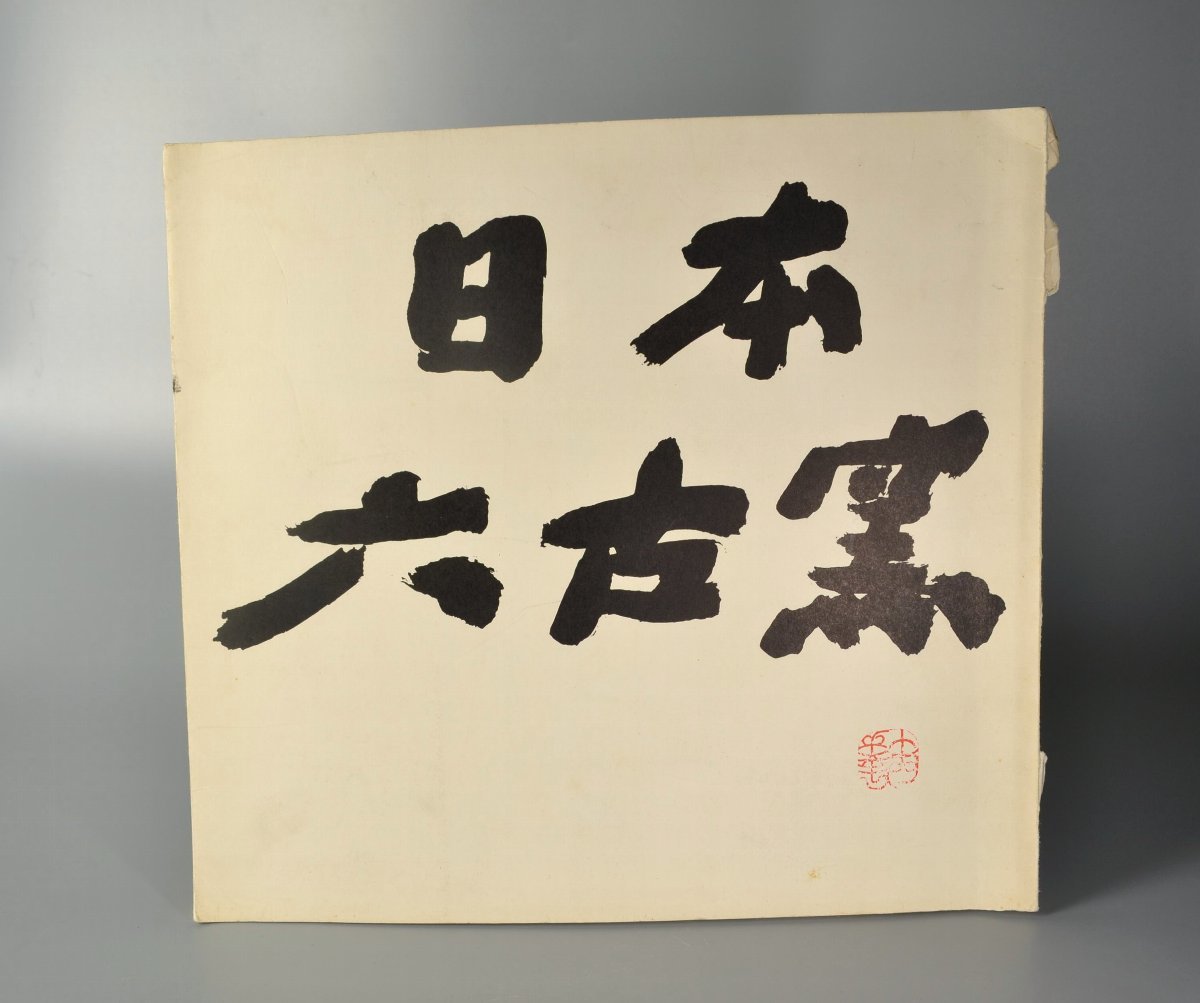 日本
六古窯